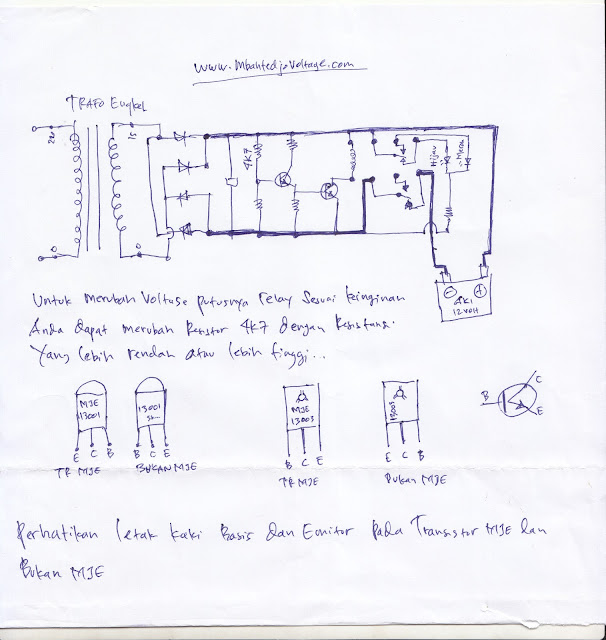 www.MbahtedjoVoltage.com
TRAFO Engkel
220
15
0
0
4K7
Hijau
Merah
- +
AKI
12 Volt
Untuk merubah Voltase putusnya relay sesuai keinginan
Anda dapat merubah Resistor 4k7 dengan Resistansi
Yang lebih rendah atau lebih tinggi...
MJE
13001
13001
MJE
13003
13003
B C E
E C B
TR MJE
B C E
BUKAN MJE
B C E
TR MJE
E C B
Bukan MJE
Perhatikan letak kaki Basis dan Emitor Pada Transistor MJE dan
Bukan MJE